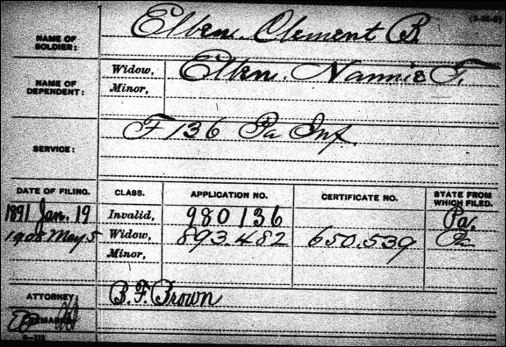 NAME OF SOLDIER: Elken Clement B.
NAME OF DEPENDENT: Widow, Elken Nannie T.
Minor,
SERVICE: F 136 Pa Inf.
DATE OF FILING. CLASS. APPLICATION NO. CERTIFICATE NO. STATE FROM WHICH FILED.
1891 Jan. 19 Invalid, 980136 Pa.
1908 May 5 Widow, 893.482 650.539
Minor,
ATTORNEY: B. F. Brown